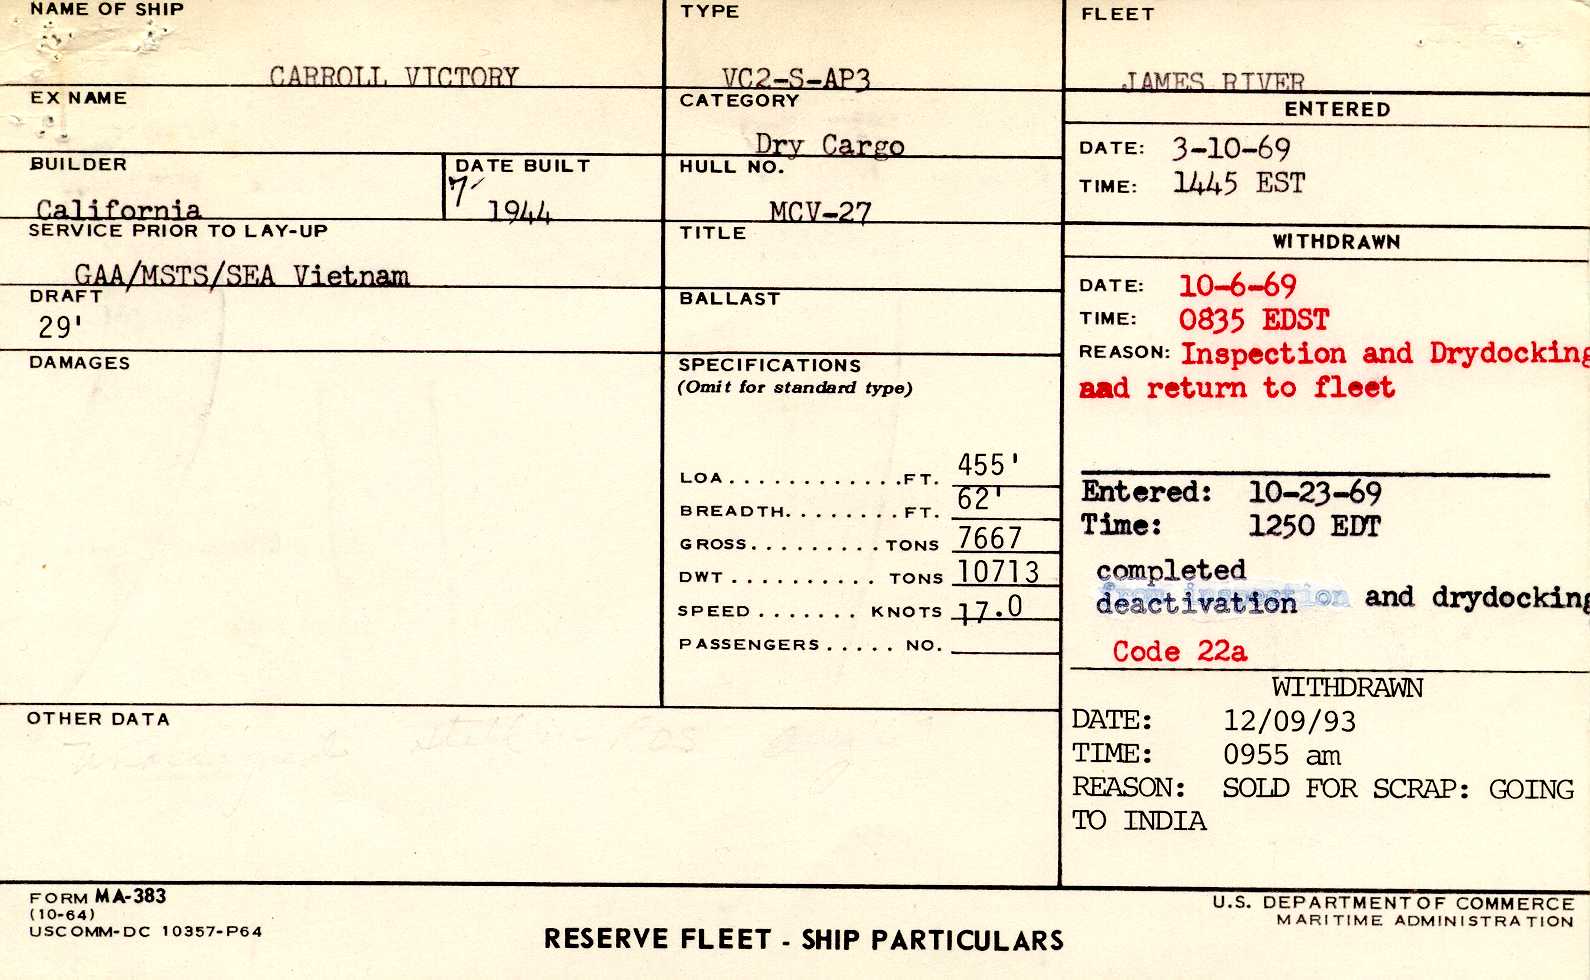 NAME OF SHIP
CARROLL VICTORY
TYPE
VC2-S-AP3
FLEET
JAMES RIVER
EX NAME
CATEGORY
Dry Cargo
ENTERED
DATE: 3-10-69
TIME: 1445 EST
BUILDER
California
DATE BUILT
7/ 1944
HULL NO.
MCV-27
SERVICE PRIOR TO LAY-UP
GAA/MSTS/SEA Vietnam
TITLE
WITHDRAWN
DATE: 10-6-69
TIME: 0835 EDST
REASON: Inspection and Drydocking
aad return to fleet
DRAFT
29'
BALLAST
DAMAGES
SPECIFICATIONS
(Omit for standard type)
LOA............FT. 455'
BREADTH........FT. 62'
GROSS.........TONS 7667
DWT.......... TONS 10713
SPEED....... KNOTS 17.0
PASSENGERS..... NO.
Entered: 10-23-69
Time: 1250 EDT
completed
deactivation and drydocking
Code 22a
WITHDRAWN
DATE: 12/09/93
TIME: 0955 am
REASON: SOLD FOR SCRAP: GOING
TO INDIA
OTHER DATA
FORM MA-383
(10-64)
USCOMM-DC 10357-P64
RESERVE FLEET - SHIP PARTICULARS
U.S. DEPARTMENT OF COMMERCE
MARITIME ADMINISTRATION